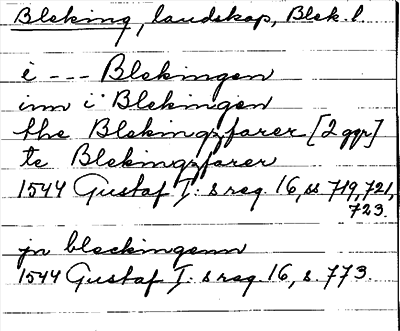 Bleking, landskap, Blek. l
i --- Blekingen
inn i Blekingen
the Blekingzfarer [2 ggr]
te Blekingzfarer
1544 Gustaf I: s reg. 16, ss 719, 721,
723.
jn bleckingenn
1544 Gustaf I: s reg. 16, s. 773.